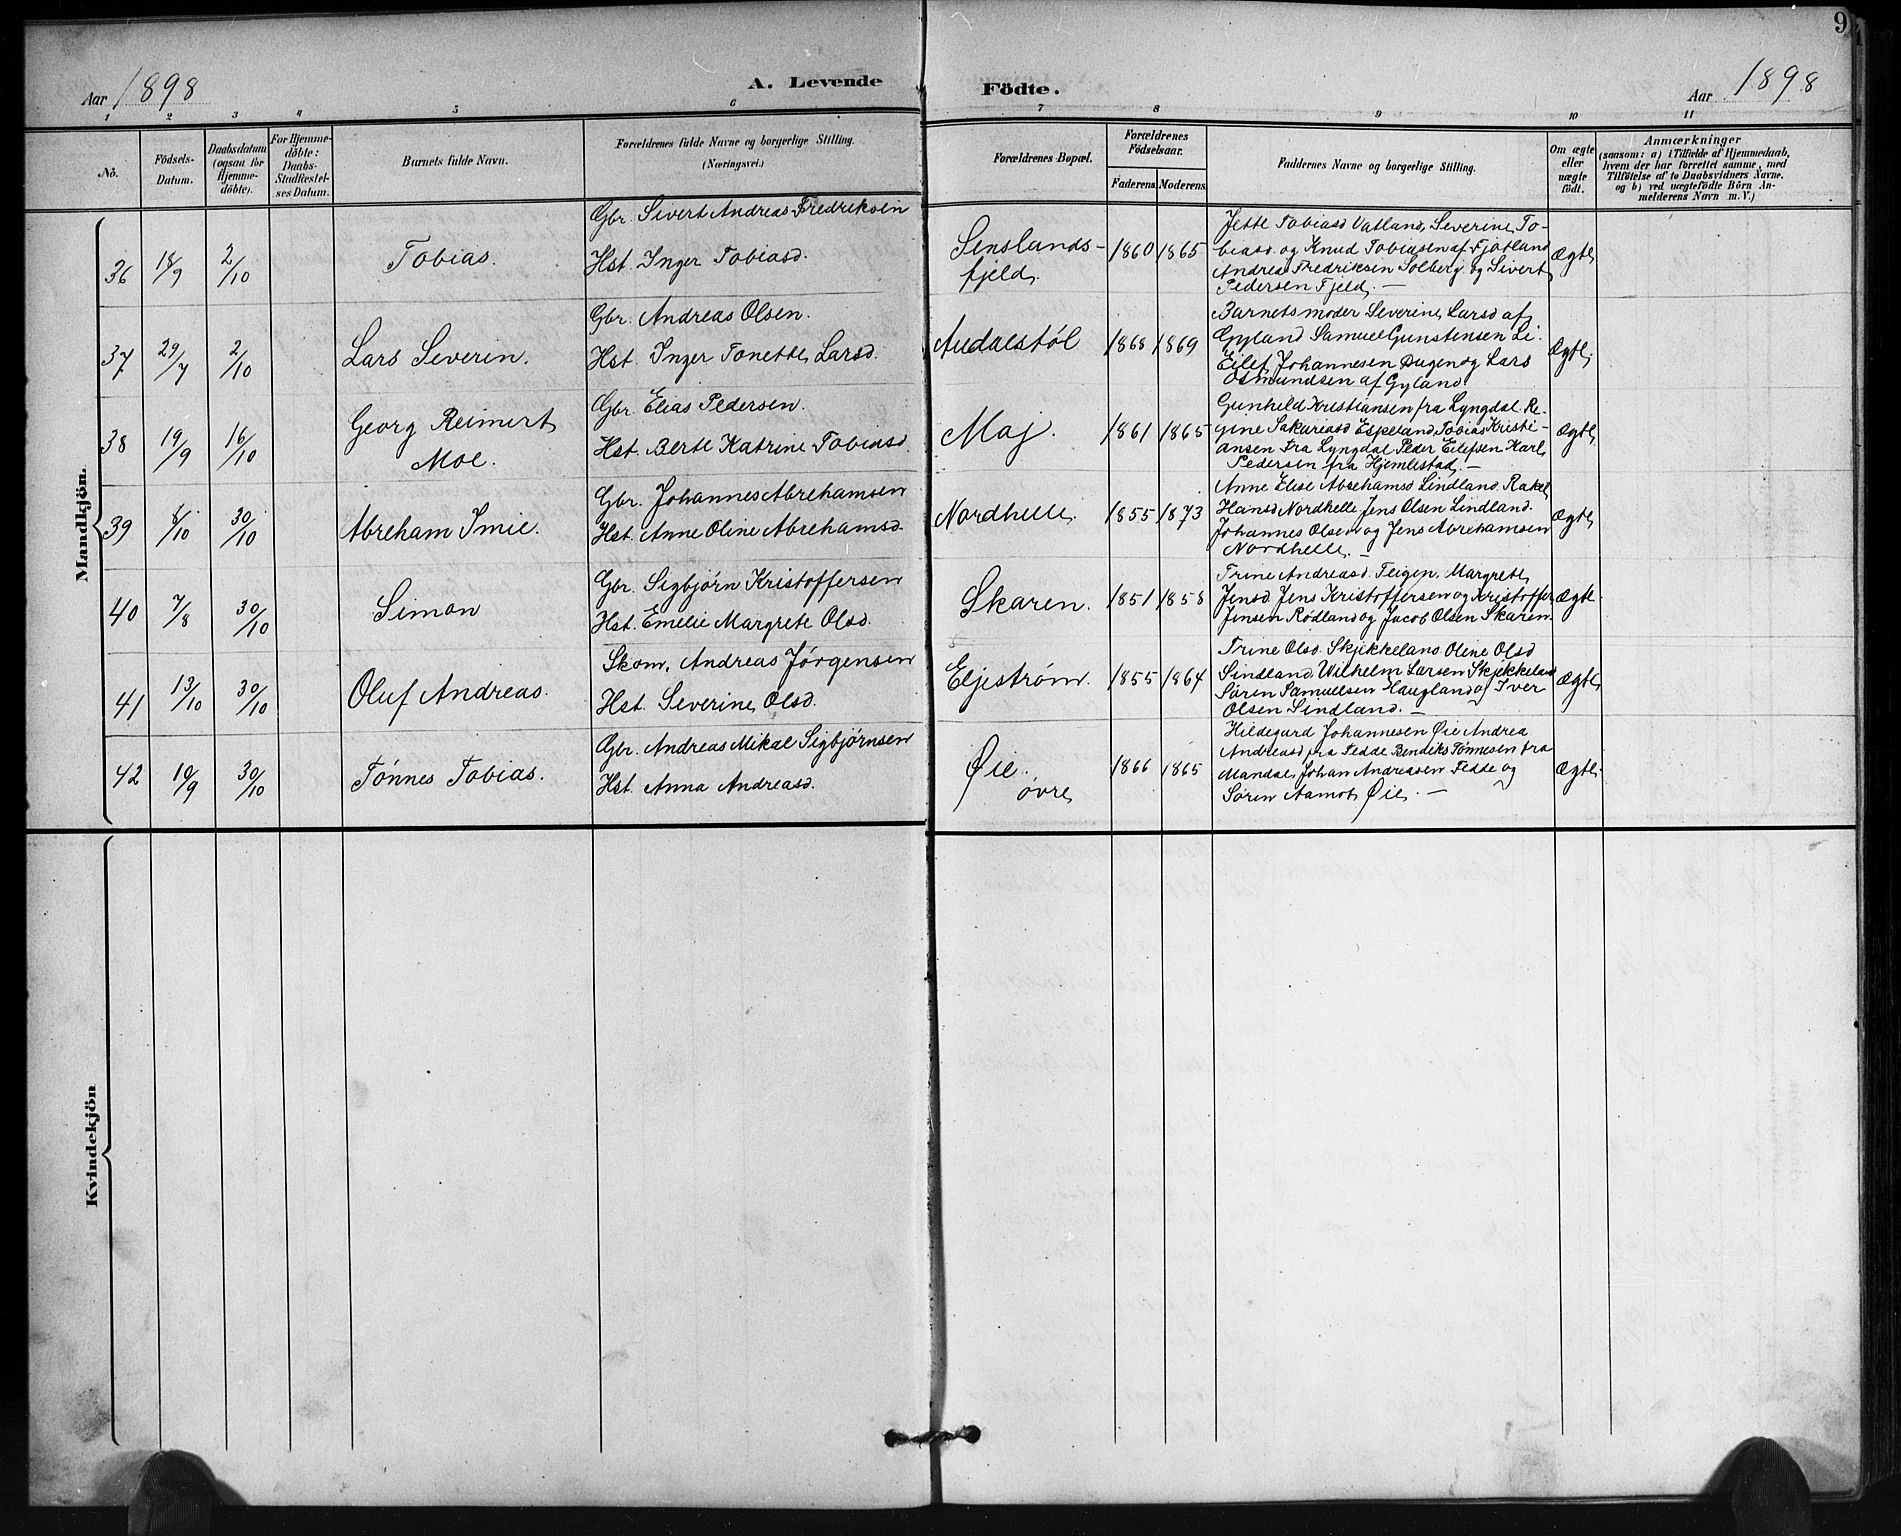 9
Aar 1898
A. Levende
Födte.
Aar 1898
1 2 3 4 5 6 7 8 9 10 11
No.
Födsels-
Datum.
Daabsdatum
(ogsaa for
Hjemme-
döbte).
For Hjemme-
döbte:
Daabs-
Stadfæstel-
ses Datum.
Barnets fulde Navn.
Forældrenes fulde Navne og borgerlige Stilling.
(Næringsvei.)
Forældrenes Bopæl.
Forældrenes
Födselsaar.
Faderens. Moderens.
Faddernes Navne og borgerlige Stilling.
Om ægte
eller
uægte
födt.
Anmærkninger
(saasom: a) i Tilfælde af Hjemmedaab,
hvem der har forrettet samme, med
Tilföielse af to Daabsvidners Navne.
og b) ved uægtefödte Börn An-
melderens Navn m. V.)
Mandkjön.
36 18/9 2/10 Tobias.
Gbr. Sivert Andreas Fredriksen
Hst. Inger Tobiasd.
Senslands-
fjeld.
1860 1865
Jette Tobiasd Vatland, Severine To-
biasd. og Knud Tobiasen af Fjotland
Andrea Fredriksen Solberg og Sivert
Pedersen Fjeld. —
Ægte
37 29/7 2/10 Lars Severin.
Gbr. Andreas Olsen.
Hst. Inger Tonette Larsd.
Audalstöl
1868 1869
Barnets moder Severine Larsd af
Gyland Samuel Gunstensen Li.
Eilef Johannesen Dugen og Lars
Osmundsen af Gyland
Ægte.
38 19/9 16/10 Georg Reimert
Moe.
Gbr. Elias Pedersen.
Hst. Berte Katrine Tobiasd.
Maj.
1861 1865
Gunhild Kristiansen fra Lyngdal Re-
gine Sakariasd Espeland, Tobias Kristi-
ansen fra Lyngdal Peder Eilefsen Karl
Pedersen fra Hjemlestad. —
Ægte
39 /10 30/10 Abreham Imie.
Gbr. Johannes Abrehamsen
Hst. Anne Oline Abrehamsd.
Nordhelle.
1855 1873
Anne Elise Abrehamsd Lindland Rakel
Hansd Nordhelle Jens Olsen Lindland.
Johannes Olsen og Jens Abrehamsen
Nordhelle. —
Ægte
40 7/8 30/10 Simon
Gbr. Sigbjörn Kristoffersen
Hst. Emelie Margrete Olsd.
Skaren.
1851 1858
Trine Andreasd. Feigen, Margrete
Jensd. Jens Kristoffersen og Kristoffer
Jensen Rödland og Jacob Olsen Skaren
Ægte.
41 13/10 30/10 Oluf Andreas.
Skom. Andreas Jörgensen
Hst. Severine Olsd.
Eljeström.
1855 1864
Trine Olsd. Skjekkelans Oline Olsd
Sindland, Wilhelm Larsen Skjekkeland
Sören Samuelsen Haugland og Iver
Olsen Sindland. —
Ægte
42 19/9 30/10 Tönnes Tobias.
Gbr. Andreas Mikal Sigbjörnsen
Hst. Anna Andreasd.
Øie.
øvre
1866 1865
Hildegard Johannesen Øie Andrea
Andreasd fra Fedde Bendiks Tönnesen fra
Mandal, Johan Andreasen Fedde og
Sören Aamot Øie. —
Ægte.
Kvindekjön